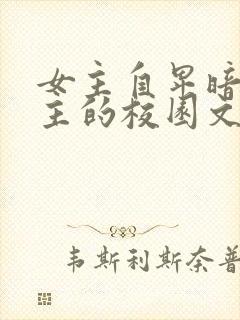 女主自卑暗
主的校园文
韦斯利斯奈普